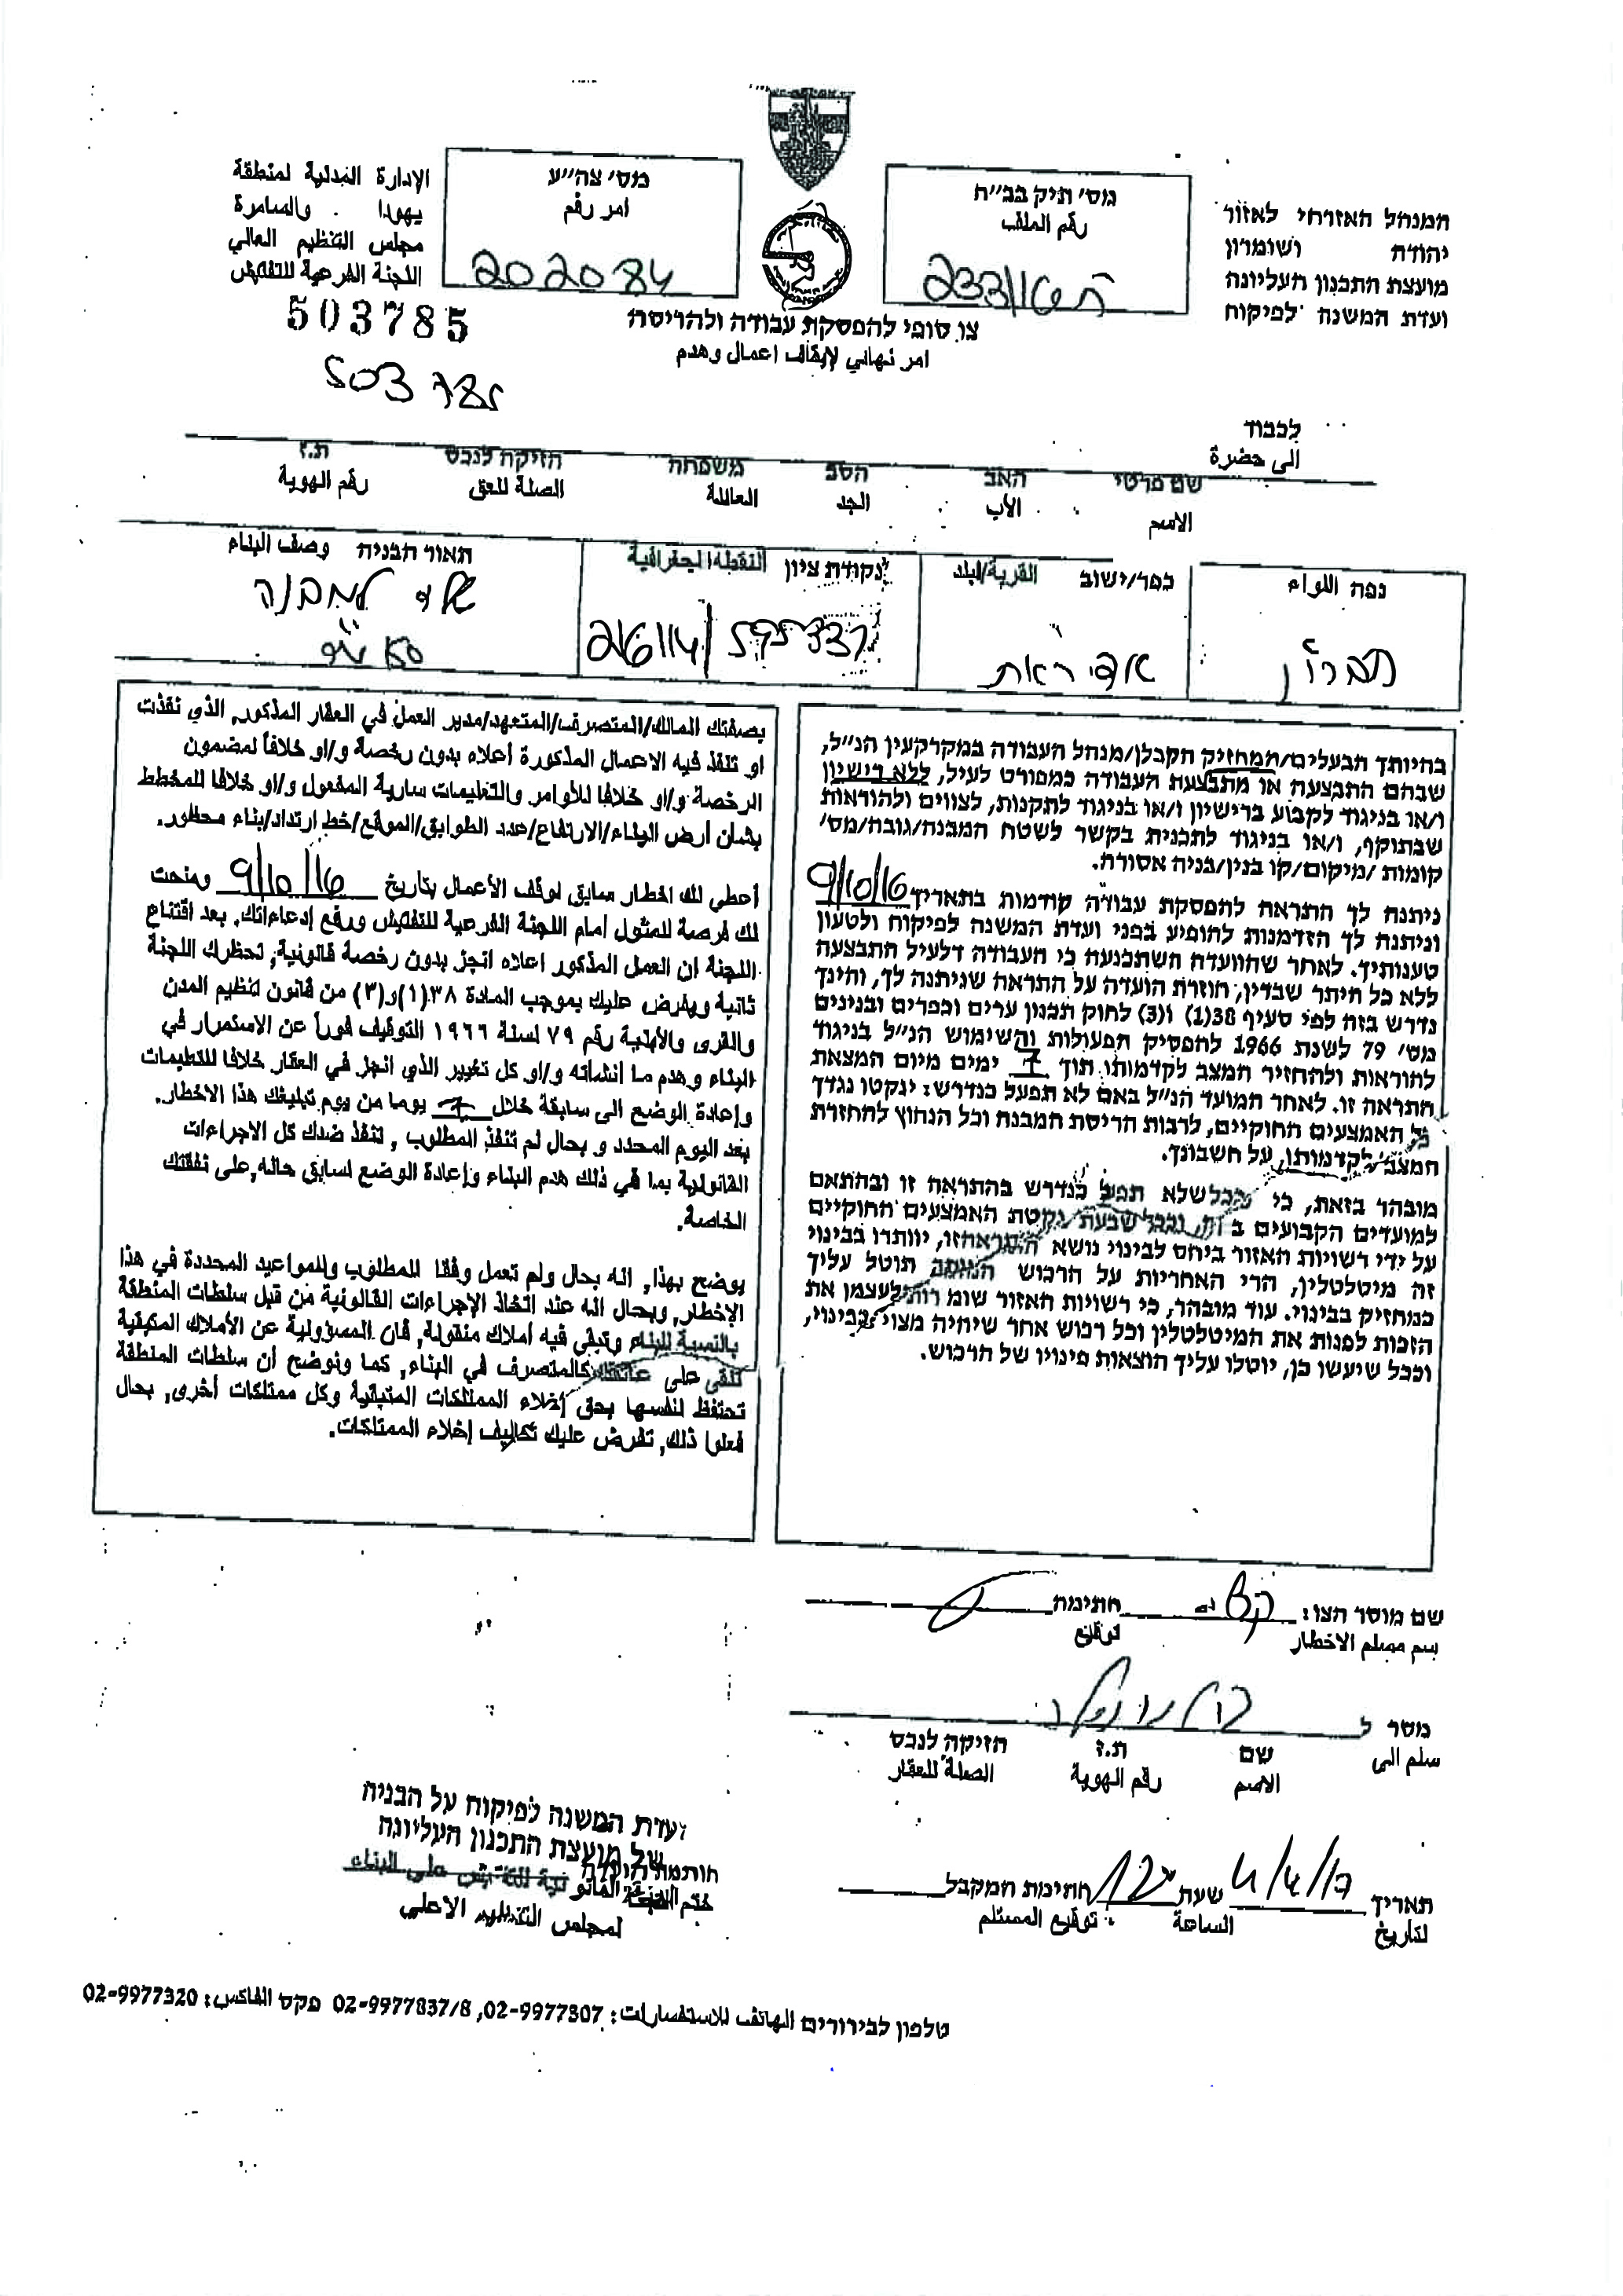 המנהל האזרחי לאזור
יהודה ושומרון
מועצת התכנון העליונה
ועדת המשנה לפיקוח
מס׳ תיק בב״ח
رقم الملف
233/16
מס׳ צה״ע
امر رقم
202084
الإدارة المدنية لمنطقة
يهودا والسامرة
مجلس التنظيم العالي
اللجنة الفرعية للتفتيش
503785
503785
צו סופי להפסקת עבודה ולהריסה
امر نهائي لإيقاف اعمال وهدم
לכבוד
الى حضرة
שם פרטי האב הסב משפחה הזיקה לנכס ת.ז
الاسم الأب الجد العائلة الصلة للعق رقم الهوية
נפה اللواء כפר/ישוב القرية/البلد נקודת ציון النقطة الجغرافية תאור הבניה وصف البناء
חברון 595337 / 216114 למבנה
בהיותך הבעלים/המחזיק הקבלן/מנהל העבודה במקרקעין הנ״ל,
שבהם התבצעה או מתבצעת העבודה כמפורט לעיל, ללא רישיון
ו/או בניגוד לקבוע ברישיון ו/או בניגוד לתקנות, לצווים ולהוראות
שבתוקף, ו/או בניגוד לתכנית בקשר לשטח המבנה/גובה/מס׳
קומות /מיקום/קו בנין/בניה אסורה.
ניתנה לך התראה להפסקת עבודה קודמות בתאריך 9/10/16
וניתנה לך הזדמנות להופיע בפני ועדת המשנה לפיקוח ולטעון
טענותיך. לאחר שהוועדה השתכנעה כי העבודה דלעיל התבצעה
ללא כל היתר שבדין, חוזרת הועדה על התראה שניתנה לך, והינך
נדרש בזה לפי סעיף 38(1) ו(3) לחוק תכנון ערים וכפרים ובנינים
מס׳ 79 לשנת 1966 להפסיק הפעולות והשימוש הנ״ל בניגוד
להוראות ולהחזיר המצב לקדמותו תוך 7 ימים מיום המצאת
התראה זו. לאחר המועד הנ״ל באם לא תפעל כנדרש: ינקטו נגדך
כל האמצעים החוקיים, לרבות הריסת המבנה וכל הנחוץ להחזרת
המצב לקדמותו, על חשבונך.
מובהר בזאת, כי ככל שלא תפעל כנדרש בהתראה זו ובהתאם
למועדים הקבועים בזה, וככל שבעת נקיטת האמצעים החוקיים
על ידי רשויות האזור ביחס לבינוי נושא התראה זו, יוותרו בבינוי
זה מיטלטלין, הרי האחריות על הרכוש תוטל עליך
כמחזיק בבינוי. עוד מובהר, כי רשויות האזור שומרות לעצמן את
הזכות לפנות את המיטלטלין וכל רכוש אחר שיהיה מצוי בבינוי,
וככל שיעשו כן, יוטלו עליך הוצאות פינויו של הרכוש.
بصفتك المالك/المتصرف/المتعهد/مدير العمل في العقار المذكور, الذي نفذت
او تنفذ فيه الاعمال المذكورة اعلاه بدون رخصة و/او خلافاً لمضمون
الرخصة و/او خلافا للأوامر والتعليمات سارية المفعول و/او خلافا للمخطط
بشأن أرض البناء/الارتفاع/عدد الطوابق/الموقع/خط ارتداد/بناء محظور.
أعطي لك اخطار سابق لوقف الأعمال بتاريخ 9/10/16 ومنحت
لك فرصة للمثول أمام اللجنة الفرعية للتفتيش ورفع إدعاءاتك, بعد اقتناع
اللجنة ان العمل المذكور اعلاه انجز بدون رخصة قانونية, تحظرك اللجنة
ثانية ويفرض عليك بموجب المادة ٣٨(١)و(٣) من قانون تنظيم المدن
والقرى والأبنية رقم ٧٩ لسنة ١٩٦٦ التوقيف فوراً عن الاستمرار في
البناء وهدم ما انشأته و/او كل تغيير الذي انجز في العقار خلافا للتعليمات
وإعادة الوضع الى سابقة خلال 7 يوما من يوم تبليغك هذا الاخطار.
بعد اليوم المحدد و بحال لم تنفذ المطلوب , تنفذ ضدك كل الاجراءات
القانونية بما في ذلك هدم البناء وإعادة الوضع لسابق حاله,على نفقتك
الخاصة.
يوضح بهذا, انه بحال ولم تعمل وفقا للمطلوب وللمواعيد المحددة في هذا
الإخطار, وبحال انه عند اتخاذ الإجراءات القانونية من قبل سلطات المنطقة
بالنسبة للبناء وتبقى فيه أملاك منقولة, فان المسؤولية عن الأملاك المتبقية
تلقى على عاتقك كالمتصرف في البناء, كما ونوضح أن سلطات المنطقة
تحتفظ لنفسها بحق إخلاء الممتلكات المتبقية وكل ممتلكات أخرى, بحال
فعلوا ذلك, تفرض عليك تكاليف إخلاء الممتلكات.
שם מוסר הצו: חתימה
اسم مسلم الاخطار توقيع
מסר ל
سلم الى
שם ת.ז הזיקה לנכס
الاسم رقم الهوية الصلة للعقار
תאריך 4/4/17 שעת חתימת המקבל
لتاريخ الساعة توقيع المستلم
ועדת המשנה לפיקוח על הבניה
של מועצת התכנון העליונה
חותמת הועדה
لمجلس التنظيم الاعلى
טלפון לבירורים الهاتف للاستفسارات: 02-9977307, 02-9977837/8 פקס الفاكس: 02-9977320